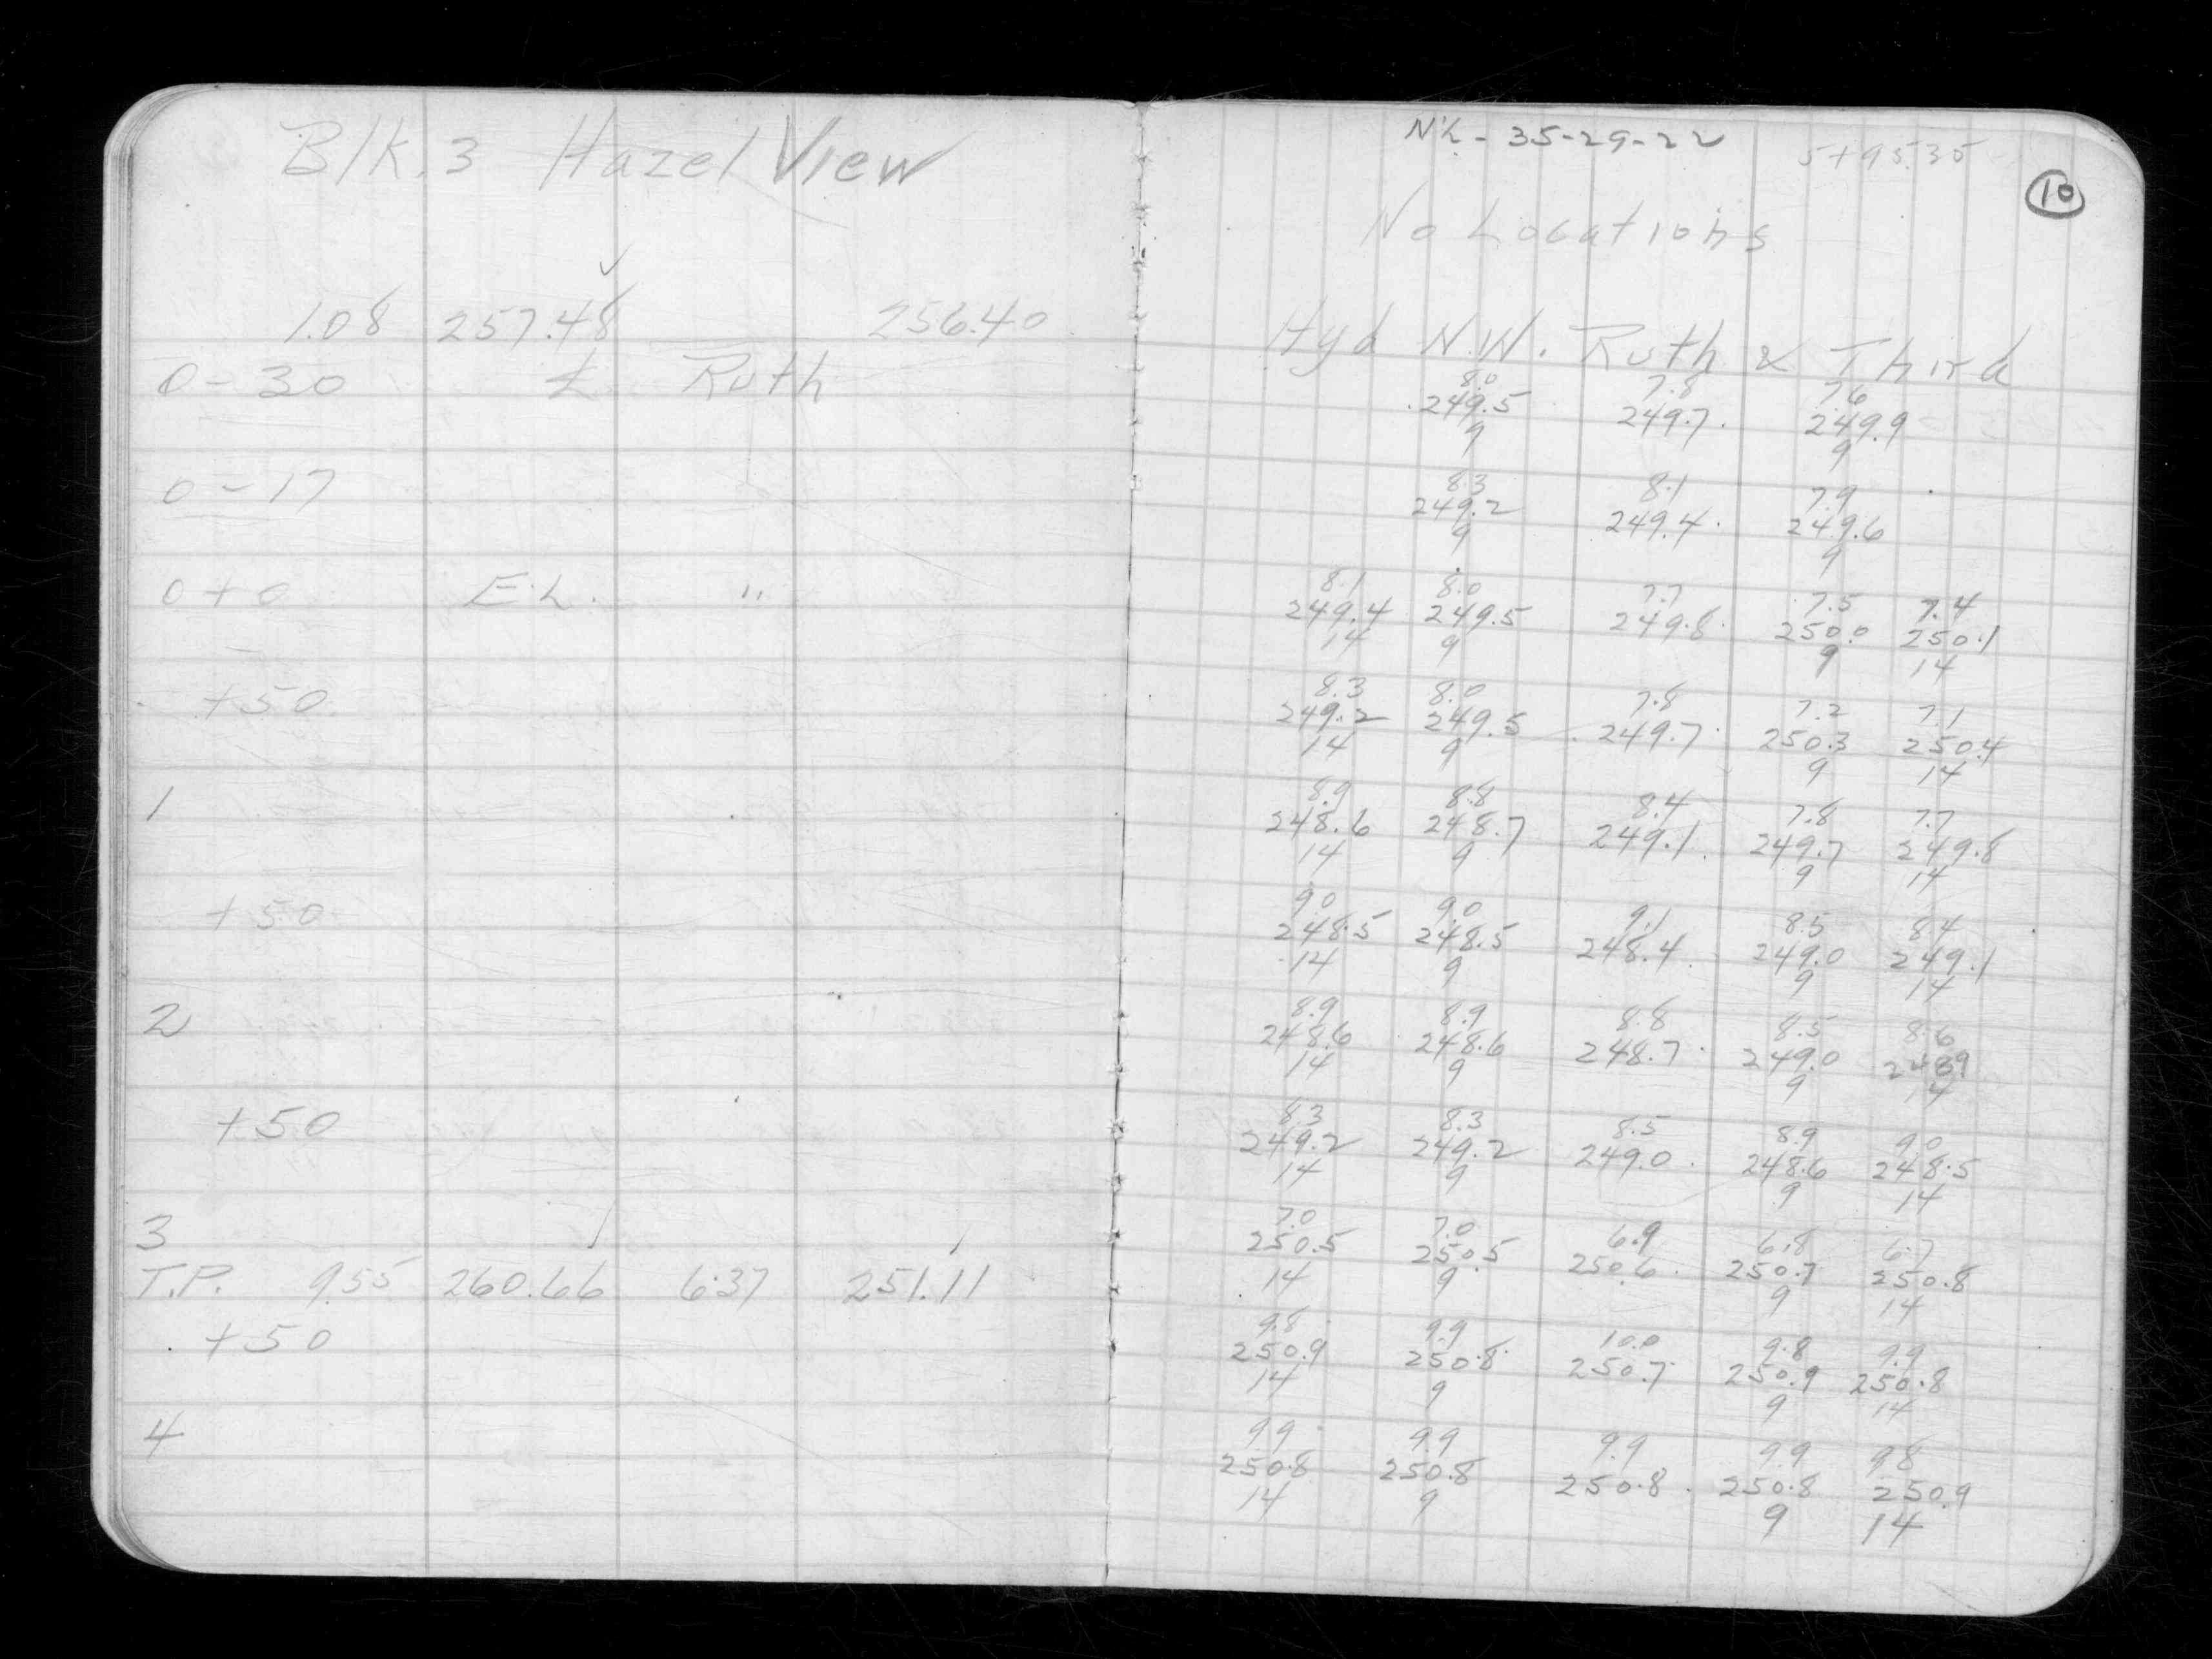 Blk. 3 Hazel View
1.08 257.48 256.40
0-30 ℄ Ruth
0-17
0+0 E.L. "
+50
1
+50
2
+50
3
T.P. 9.55 260.66 6.37 251.11
+50
4
N½ - 35-29-22
5+95.35
10
No Locations
Hyd N.W. Ruth & Third
8.0 7.8 7.6
249.5 249.7 249.9
9 9
8.3 8.1 7.9
249.2 249.4 249.6
9 9
8.1 8.0 7.7 7.5 7.4
249.4 249.5 249.8 250.0 250.1
14 9 9 14
8.3 8.0 7.8 7.2 7.1
249.2 249.5 249.7 250.3 250.4
14 9 9 14
8.9 8.8 8.4 7.8 7.7
248.6 248.7 249.1 249.7 249.8
14 9 9 14
9.0 9.0 9.1 8.5 8.4
248.5 248.5 248.4 249.0 249.1
14 9 9 14
8.9 8.9 8.8 8.5 8.6
248.6 248.6 248.7 249.0 248.9
14 9 9 14
8.3 8.3 8.5 8.9 9.0
249.2 249.2 249.0 248.6 248.5
14 9 9 14
7.0 7.0 6.9 6.8 6.7
250.5 250.5 250.6 250.7 250.8
14 9 9 14
9.8 9.9 10.0 9.8 9.9
250.9 250.8 250.7 250.9 250.8
14 9 9 14
9.9 9.9 9.9 9.9 9.8
250.8 250.8 250.8 250.8 250.9
14 9 9 14